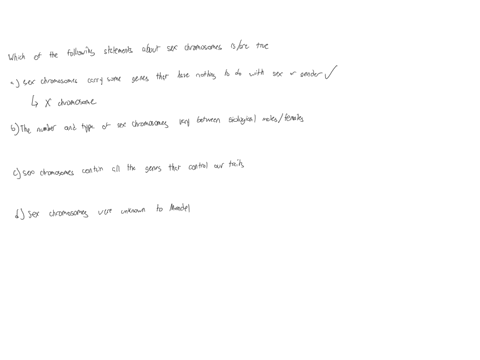 Which of the following statements about sex chromosomes is/are true
a) sex chromosomes carry some genes that have nothing to do with sex or gender ✓
↳ X chromosome
b) The number and type of sex chromosomes vary between biological males/females
c) sex chromosomes contain all the genes that control our traits
d) sex chromosomes were unknown to Mendel